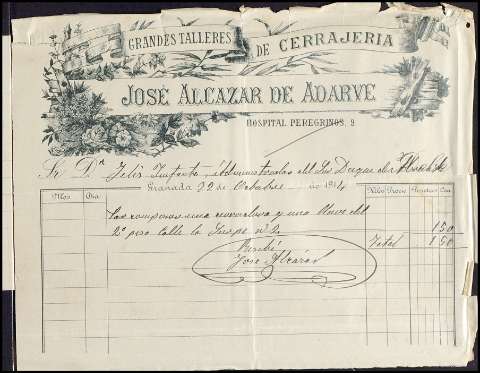 GRANDES TALLERES DE CERRAJERIA
JOSÉ ALCAZAR DE ADARVE
HOSPITAL PEREGRINOS, 2
Sr. Dn. Felix Infante, Administrador del Sr Duque de
Granada 22 de Octubre 1914
Mes Dia Pesetas Cen
Por componer una cerradura y una llave del
2º piso Calle la n 2 150
Total 150
Recibí
José Alcázar